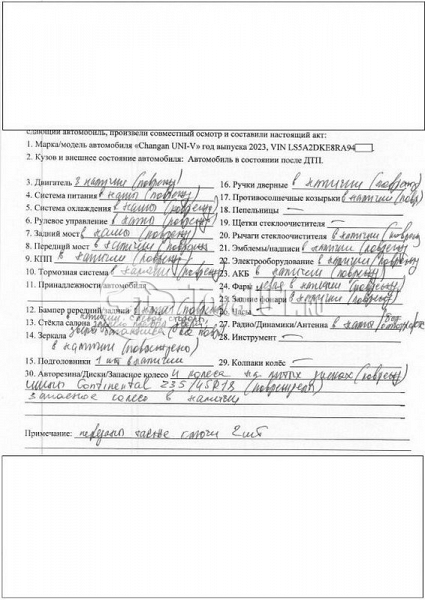 сдающий автомобиль, произвели совместный осмотр и составили настоящий акт:
1. Марка/модель автомобиля «Changan UNI-V» год выпуска 2023, VIN LS5A2DKE8RA94
2. Кузов и внешнее состояние автомобиля: Автомобиль в состоянии после ДТП.
3. Двигатель в наличии (повреж)
4. Система питания в налич (поврежд)
5. Система охлаждения в налич (поврежд)
6. Рулевое управление в налич (поврежд)
7. Задний мост в налич (поврежд)
8. Передний мост в наличии (поврежд)
9. КПП в наличии (поврежд)
10. Тормозная система в наличии (поврежд)
11. Принадлежности автомобиля
12. Бампер передний/задний в налич (повреж
13. Стёкла салона
14. Зеркала
в наличии (повреждено)
15. Подголовники 1 шт в наличии
16. Ручки дверные в наличии (поврежд)
17. Противосолнечные козырьки в наличии (повр)
18. Пепельницы —
19. Щетки стеклоочистителя —
20. Рычаги стеклоочистителя в налич (поврежд
21. Эмблемы/надписи в наличии (поврежд)
22. Электрооборудование в наличии (поврежд)
23. АКБ в наличии (поврежд)
24. Фары в наличии (поврежд)
25. Задние фонари в наличии (поврежд)
26. Часы
27. Радио/Динамики/Антенна в налич
28. Инструмент —
29. Колпаки колёс —
30. Авторезина/Диски/Запасное колесо 4 колеса на литых дисках (поврежд)
шины Continental 235/45R18 (поврежден)
запасное колесо в наличии
Примечание: ключи 2 шт